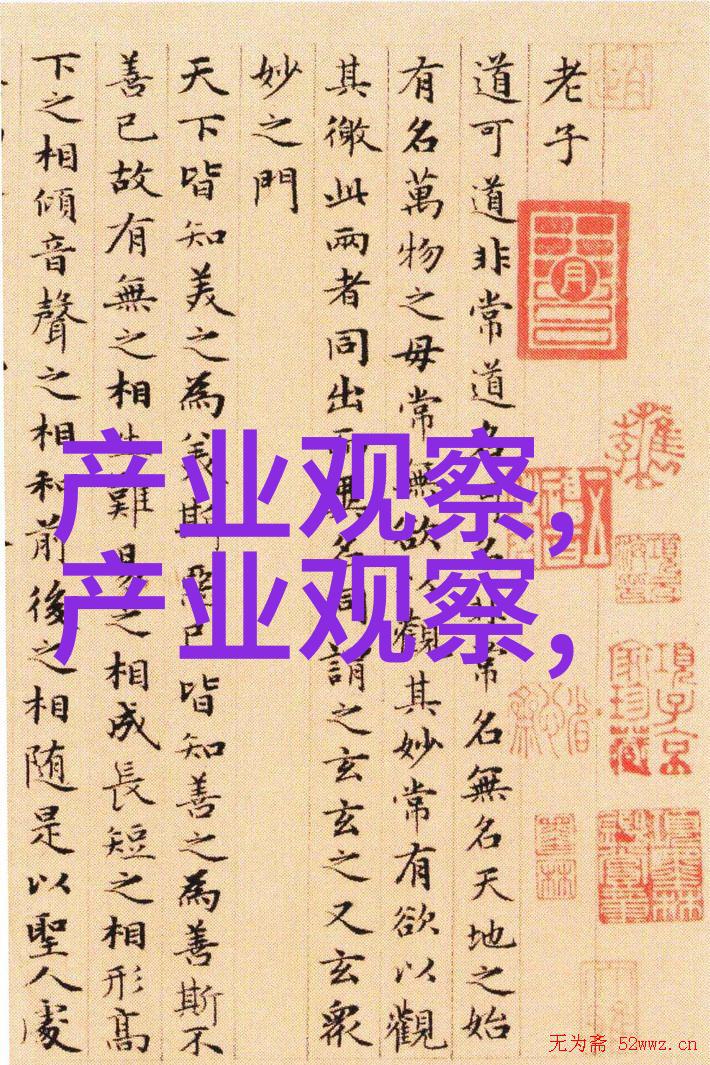 老子
道可道非常道名可名非常名無名天地之始
有名萬物之母常無欲以觀其妙常有欲以觀
其徼此兩者同出而異名同謂之玄玄之又玄衆
妙之門
天下皆知美之為美斯惡已皆知善之為善斯不
善已故有無之相生難易之相成長短之相形高
下之相傾音聲之相和前後之相随是以聖人處
产业观察,
产业观察,
項子京
家珍藏
无为斋 52wwz.cn